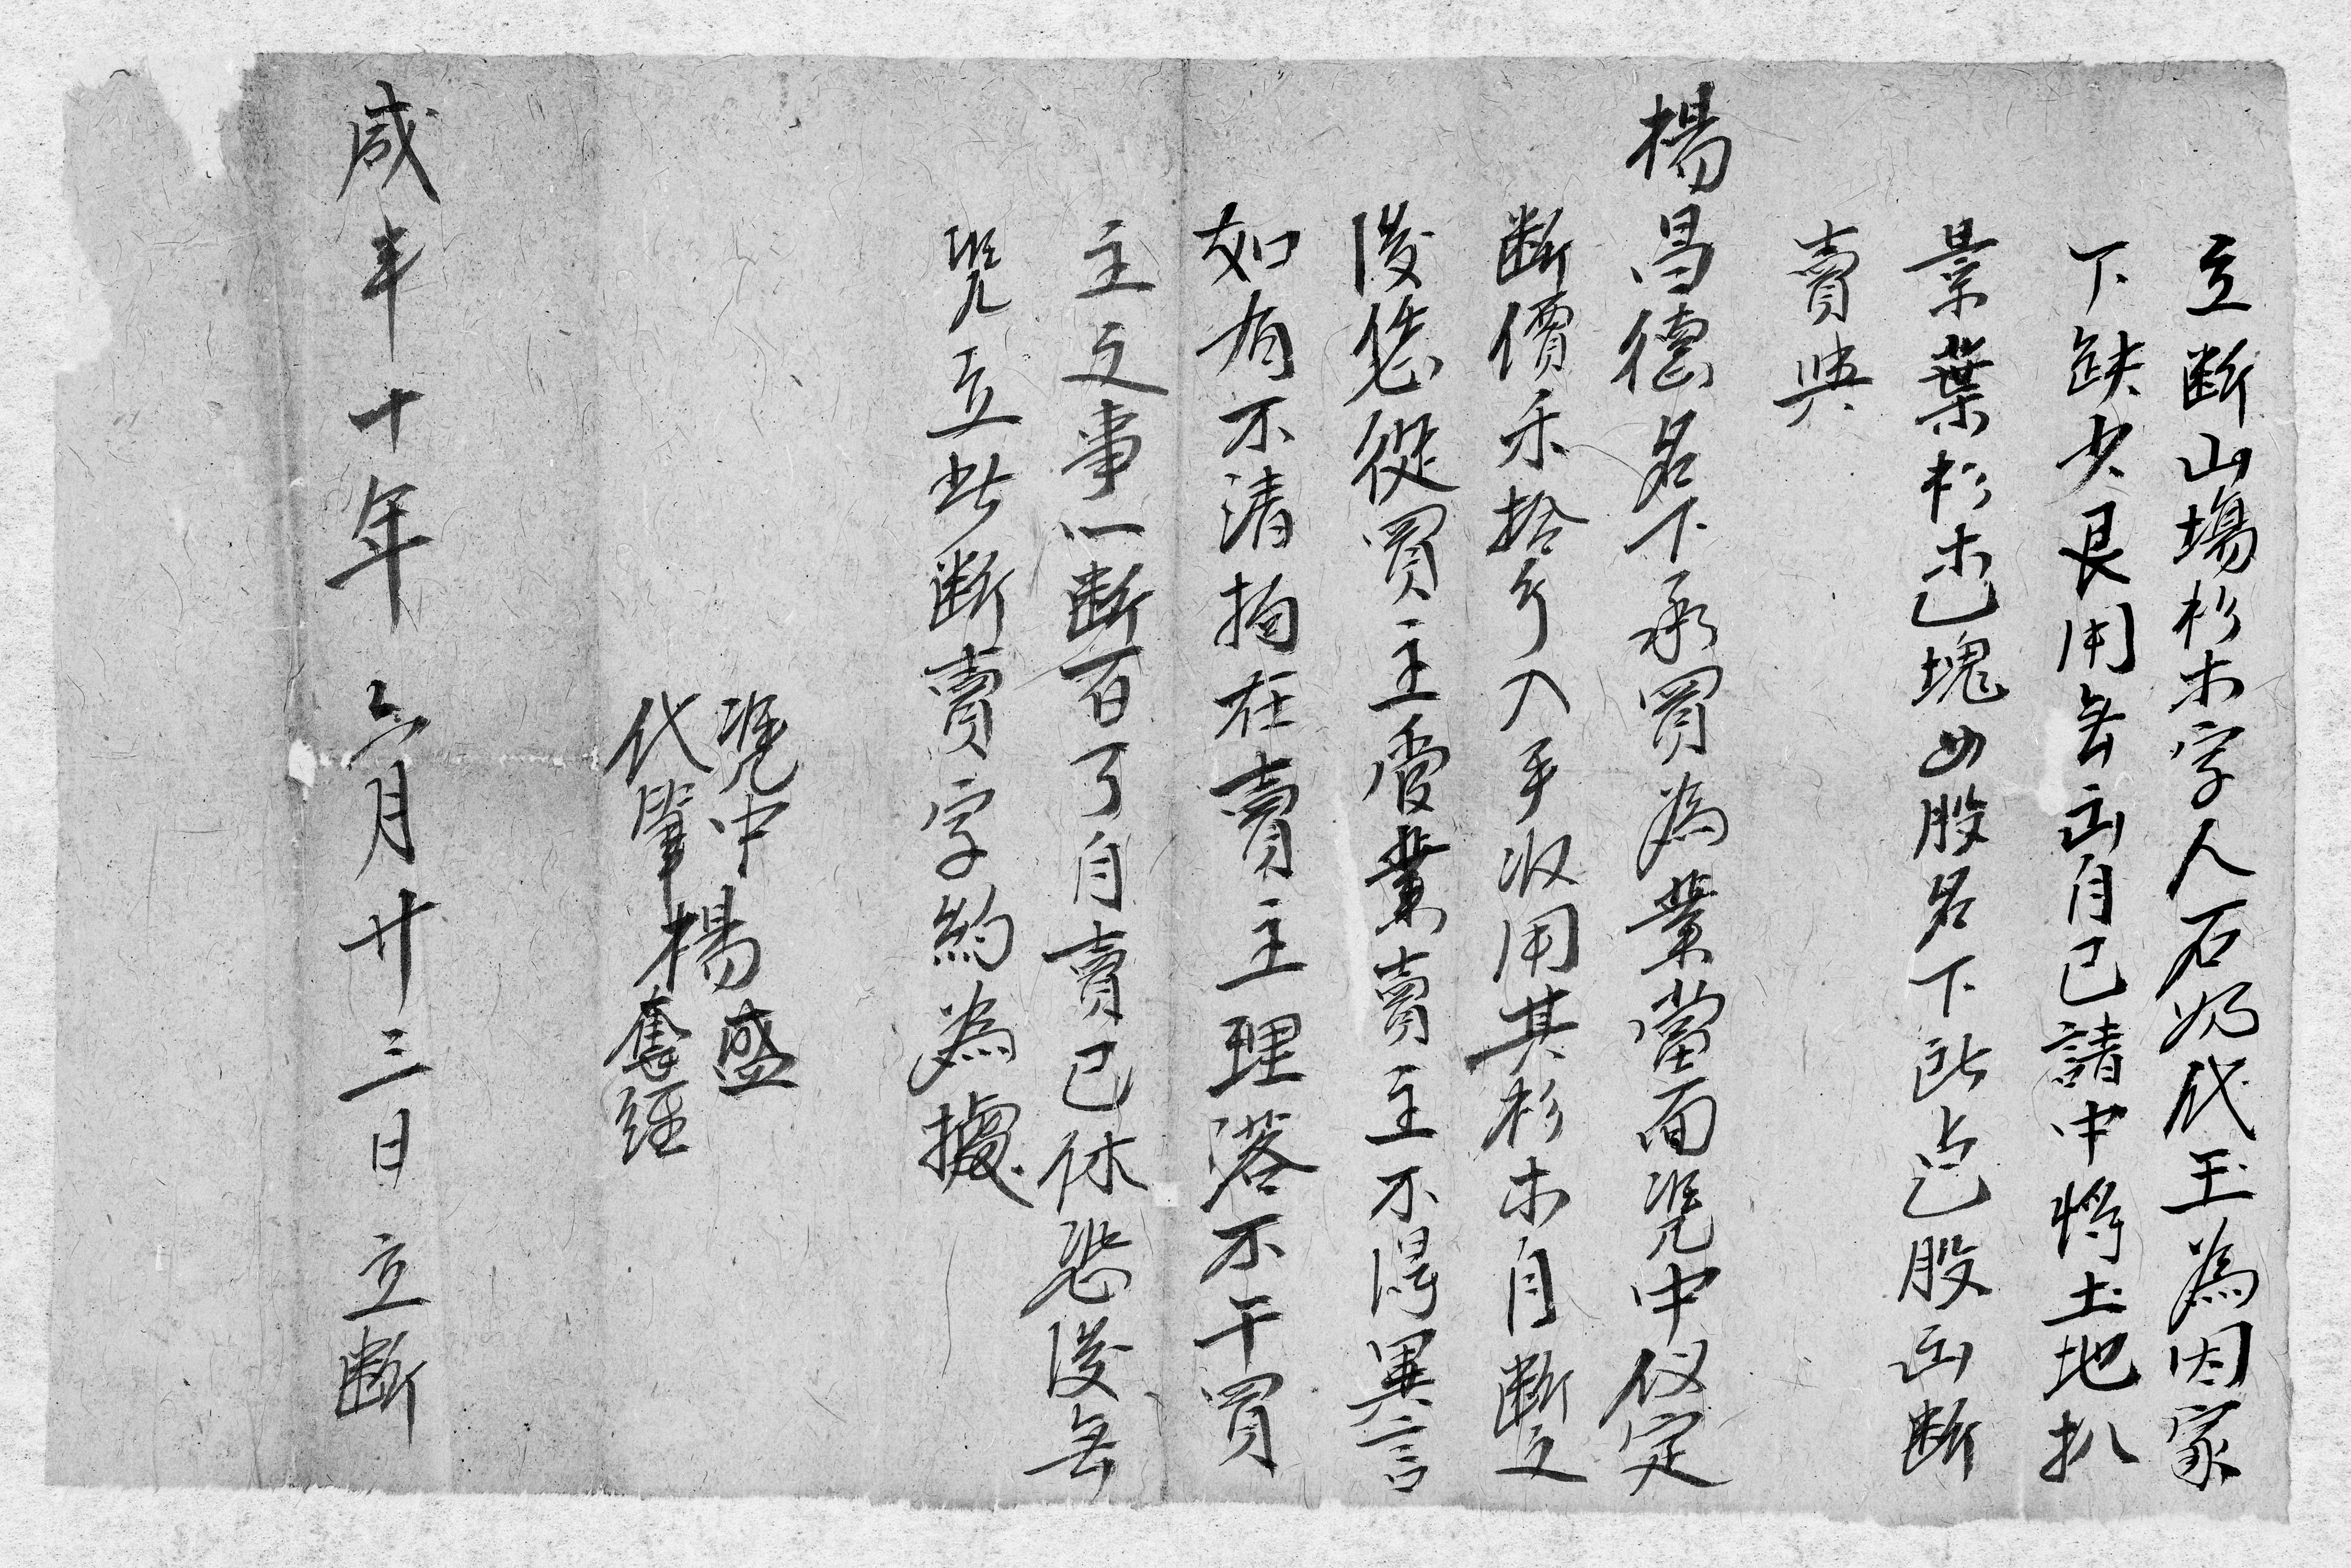 立断山場杉木字人石奶代玉為因家
下缺少艮用無出自己請中将土地扒
景葉杉木乙塊四股名下占乙股出断
賣與
楊昌德名下承買為業當面凴中仪定
断價禾拾 入手収用其杉木自断之
後恁從買主管業賣主不得異言
如有不清拘在賣主理落不干買
主之事一断百了自賣已休恐後無
凴立此断賣字約為據
凴中楊盛
代筆楊奪經
咸丰十年六月廿三日立断